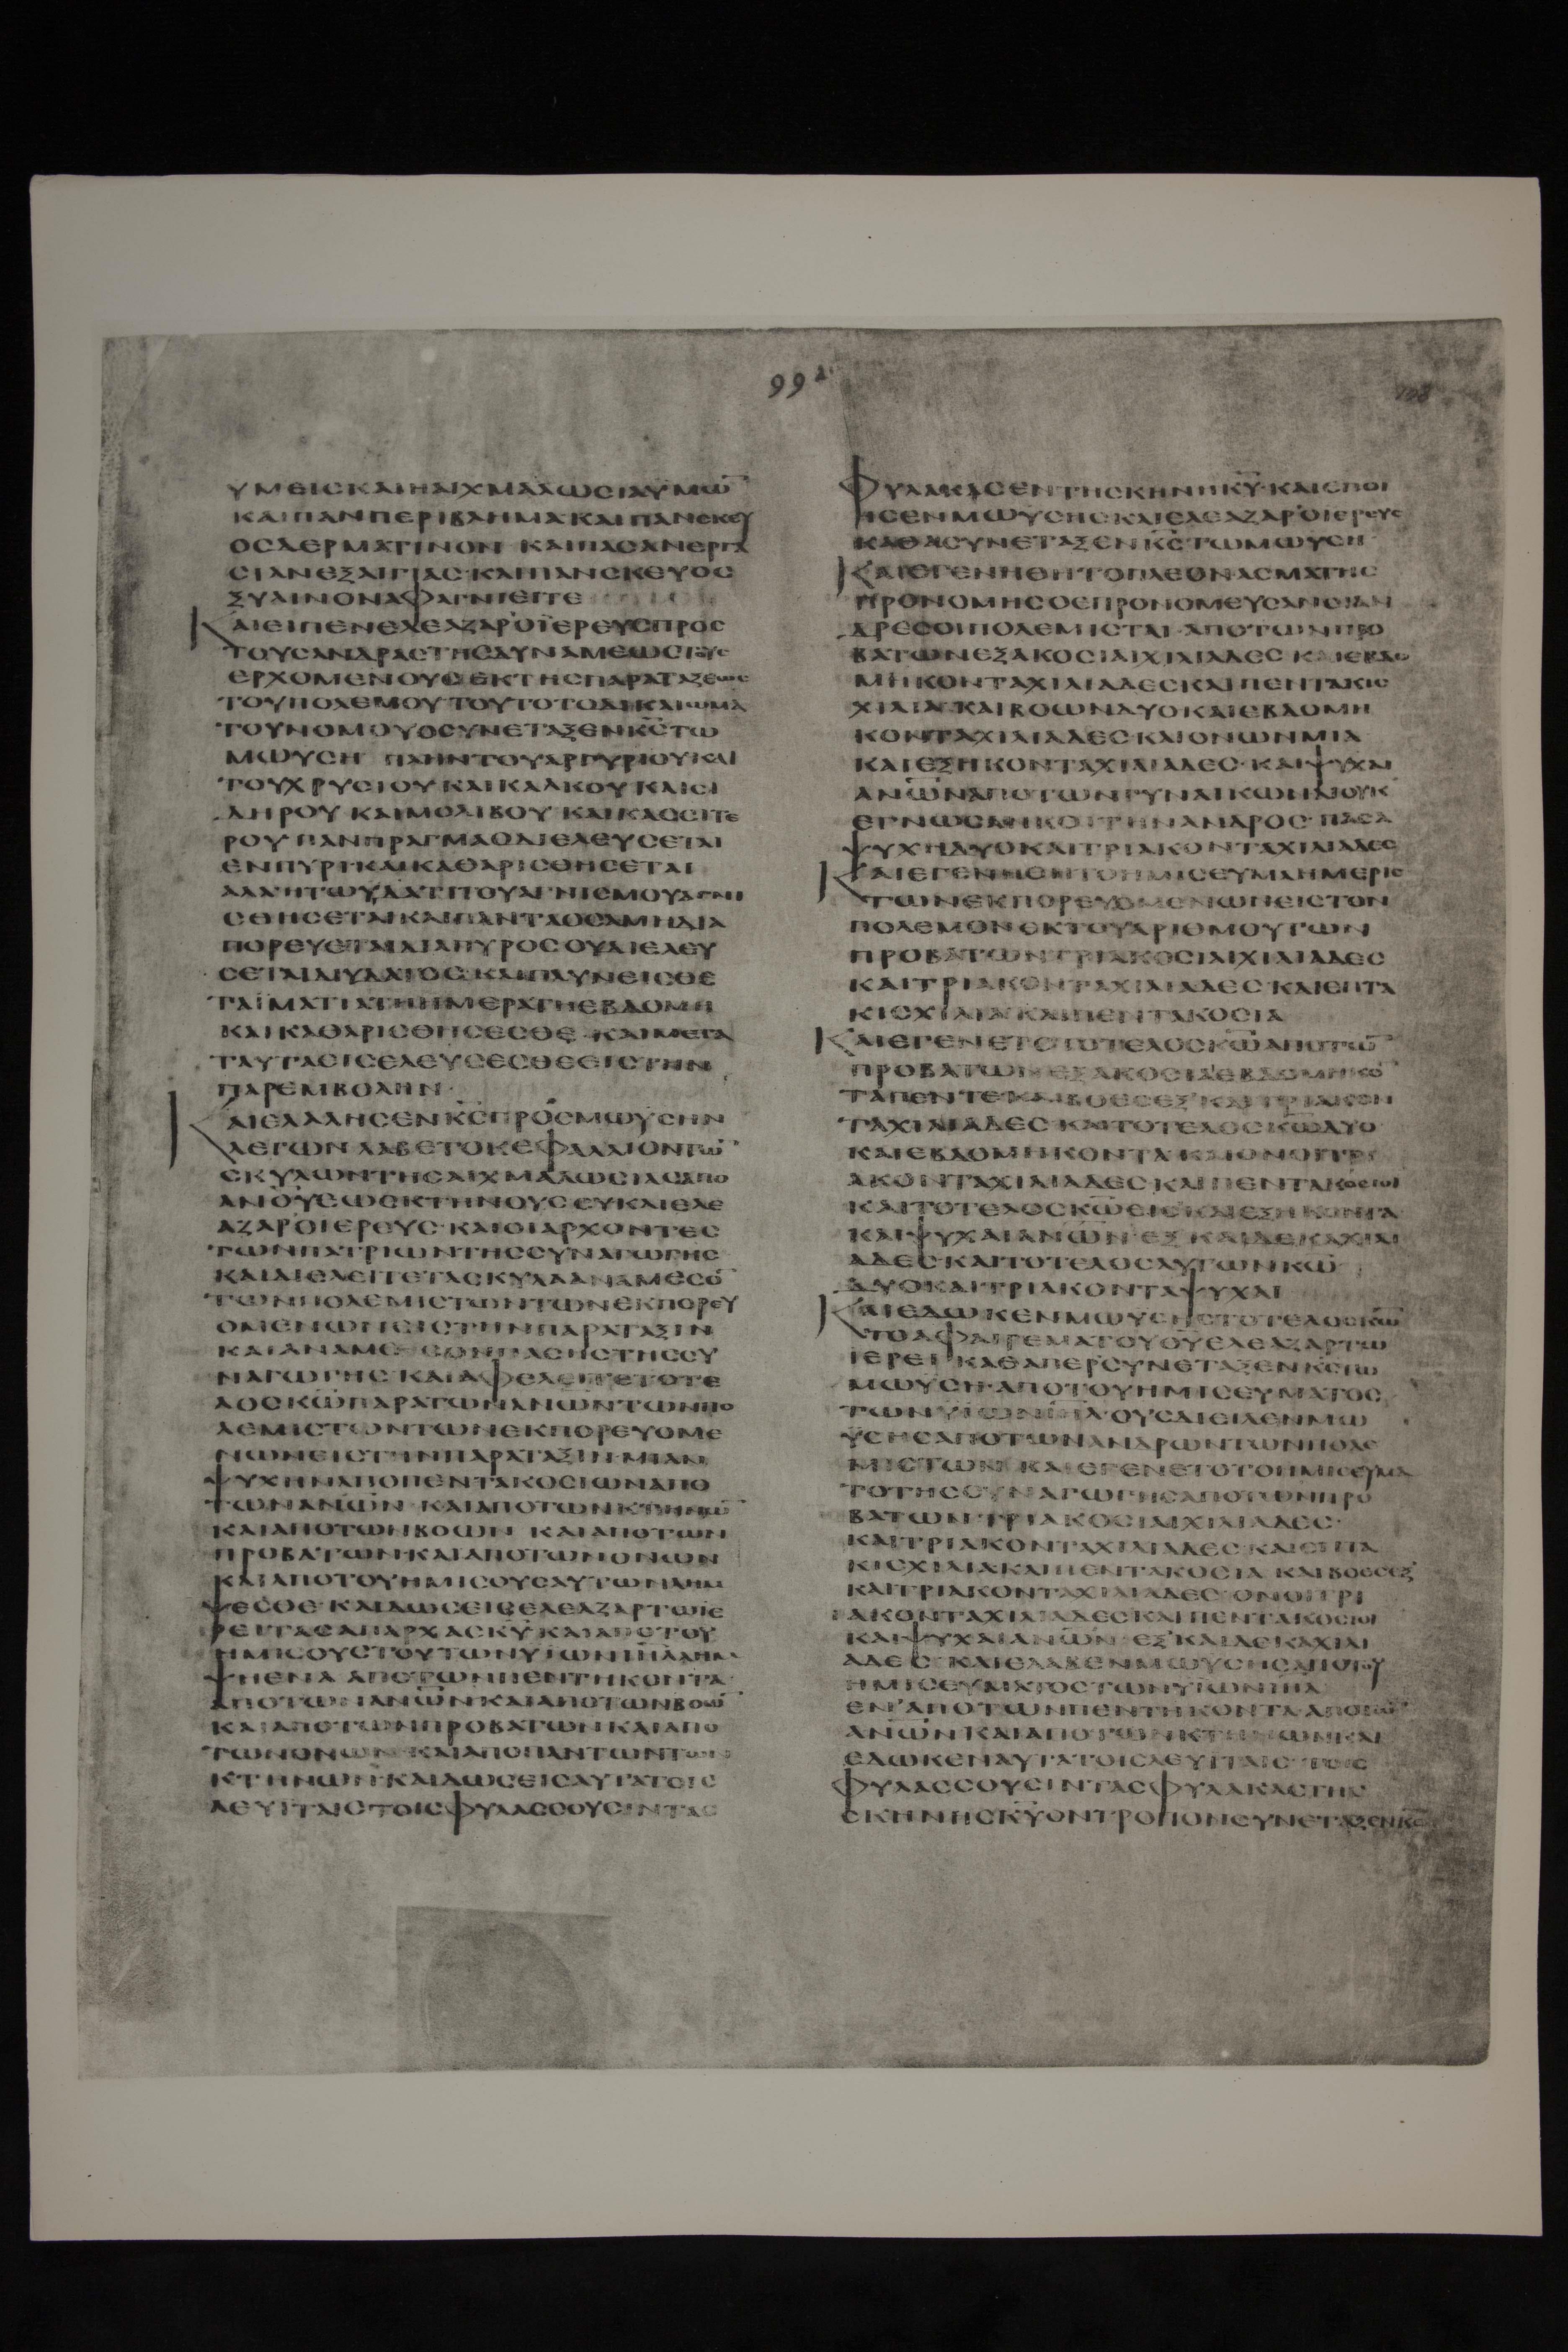 99
ΥΜΕΙϹΚΑΙΗΑΙΧΜΑΛΩϹΙΑΫΜΩ̅
ΚΑΙΠΑΝΠΕΡΙΒΛΗΜΑΚΑΙΠΑΝϹΚΕΥ
ΟϹΔΕΡΜΑΤΙΝΟΝ ΚΑΙΠΑϹΑΝΕΡΓΑ
ϹΙΑΝΕΞΑΙΓΙΑϹ·ΚΑΙΠΑΝϹΚΕΥΟϹ
ΞΥΛΙΝΟΝΑΦΑΓΝΙΕΙΤΕ
ΚΑΙΕΙΠΕΝΕΛΕΑΖΑΡΟΪΕΡΕΥϹΠΡΟϹ
ΤΟΥϹΑΝΔΡΑϹΤΗϹΔΥΝΑΜΕΩϹΤΟΥϹ
ΕΡΧΟΜΕΝΟΥϹΕΚΤΗϹΠΑΡΑΤΑΞΕΩϹ
ΤΟΥΠΟΛΕΜΟΥΤΟΥΤΟΤΟΔΙΚΑΙΩΜΑ
ΤΟΥΝΟΜΟΥΟϹΥΝΕΤΑΞΕΝΚ̅Ϲ̅ΤΩ
ΜΩΥϹΗ ΠΛΗΝΤΟΥΑΡΓΥΡΙΟΥΚΑΙ
ΤΟΥΧΡΥϹΙΟΥΚΑΙΚΑΛΚΟΥΚΑΙϹΙ
ΔΗΡΟΥ ΚΑΙΜΟΛΙΒΟΥ ΚΑΙΚΑϹϹΙΤΕ
ΡΟΥ ΠΑΝΠΡΑΓΜΑΟΔΙΕΛΕΥϹΕΤΑΙ
ΕΝΠΥΡΙ·ΚΑΙΚΑΘΑΡΙϹΘΗϹΕΤΑΙ
ΑΛΛΗΤΩΥΔΑΤΙΤΟΥΑΓΝΙϹΜΟΥΑΓΝΙ
ϹΘΗϹΕΤΑΙΚΑΙΠΑΝΤΑΟϹΑΜΗΔΙΑ
ΠΟΡΕΥΕΤΑΙΔΙΑΠΥΡΟϹΟΥΔΙΕΛΕΥ
ϹΕΤΑΙΔΙΥΔΑΤΟϹ·ΚΑΙΠΛΥΝΕΙϹΘΕ
ΤΑΪΜΑΤΙΑΤΗΗΜΕΡΑΤΗΕΒΔΟΜΗ
ΚΑΙΚΑΘΑΡΙϹΘΗϹΕϹΘΕ·ΚΑΙΜΕΤΑ
ΤΑΥΤΑΕΙϹΕΛΕΥϹΕϹΘΕΕΙϹΤΗΝ
ΠΑΡΕΜΒΟΛΗΝ·
ΚΑΙΕΛΑΛΗϹΕΝΚ̅Ϲ̅ΠΡΟϹΜΩΥϹΗΝ
ΛΕΓΩΝΛΑΒΕΤΟΚΕΦΑΛΑΙΟΝΤΩ̅
ϹΚΥΛΩΝΤΗϹΑΙΧΜΑΛΩϹΙΑϹΑΠΟ
ΑΝΟΥΕΩϹΚΤΗΝΟΥϹϹΥΚΑΙΕΛΕ
ΑΖΑΡΟΙΕΡΕΥϹ·ΚΑΙΟΙΑΡΧΟΝΤΕϹ
ΤΩΝΠΑΤΡΙΩΝΤΗϹϹΥΝΑΓΩΓΗϹ
ΚΑΙΔΙΕΛΕΙΤΕΤΑϹΚΥΛΑΑΝΑΜΕϹΟ̅
ΤΩΝΠΟΛΕΜΙϹΤΩΝΤΩΝΕΚΠΟΡΕΥ
ΟΜΕΝΩΝΕΙϹΤΗΝΠΑΡΑΤΑΞΙΝ
ΚΑΙΑΝΑΜΕϹΟΝΠΑϹΗϹΤΗϹϹΥ
ΝΑΓΩΓΗϹ ΚΑΙΑΦΕΛΕΙΤΕΤΟΤΕ
ΛΟϹΚ̅Ω̅ΠΑΡΑΤΩΝΑΝ̅Ω̅Ν̅ΤΩΝΠΟ
ΛΕΜΙϹΤΩΝΤΩΝΕΚΠΟΡΕΥΟΜΕ
ΝΩΝΕΙϹΤΗΝΠΑΡΑΤΑΞΙΝΜΙΑΝ
ΨΥΧΗΝΑΠΟΠΕΝΤΑΚΟϹΙΩΝΑΠΟ
ΤΩΝΑΝ̅Ω̅Ν̅ ΚΑΙΑΠΟΤΩΝΚΤΗΝΩ̅
ΚΑΙΑΠΟΤΩΝΒΟΩΝ ΚΑΙΑΠΟΤΩΝ
ΠΡΟΒΑΤΩΝ·ΚΑΙΑΠΟΤΩΝΟΝΩΝ
ΚΑΙΑΠΟΤΟΥΗΜΙϹΟΥϹΑΥΤΩΝΛΗΜ
ΨΕϹΘΕ·ΚΑΙΔΩϹΕΙϹΕΛΕΑΖΑΡΤΩΙΕ
ΡΕΙΤΑϹΑΠΑΡΧΑϹΚ̅Υ̅·ΚΑΙΑΠΟΤΟΥ
ΗΜΙϹΟΥϹΤΟΥΤΩΝΥΙΩΝΙ̅Η̅Λ̅ΛΗΜ
ΨΗΕΝΑ ΑΠΟΤΩΝΠΕΝΤΗΚΟΝΤΑ
ΑΠΟΤΩΝΑΝ̅Ω̅Ν̅ΚΑΙΑΠΟΤΩΝΒΟΩ̅
ΚΑΙΑΠΟΤΩΝΠΡΟΒΑΤΩΝΚΑΙΑΠΟ
ΤΩΝΟΝΩΝ·ΚΑΙΑΠΟΠΑΝΤΩΝΤΩΝ
ΚΤΗΝΩΝ·ΚΑΙΔΩϹΕΙϹΑΥΤΑΤΟΙϹ
ΛΕΥΙΤΑΙϹΤΟΙϹΦΥΛΑϹϹΟΥϹΙΝΤΑϹ
ΦΥΛΑΚΑϹΕΝΤΗϹΚΗΝΗΚ̅Υ̅·ΚΑΙΕΠΟΙ
ΗϹΕΝΜΩΥϹΗϹΚΑΙΕΛΕΑΖΑΡΟΙΕΡΕΥϹ
ΚΑΘΑϹΥΝΕΤΑΞΕΝΚ̅Ϲ̅ΤΩΜΩΥϹΗ
ΚΑΙΕΓΕΝΗΘΗΤΟΠΛΕΟΝΑϹΜΑΤΗϹ
ΠΡΟΝΟΜΗϹΟΕΠΡΟΝΟΜΕΥϹΑΝΟΙΑΝ
ΔΡΕϹΟΙΠΟΛΕΜΙϹΤΑΙ·ΑΠΟΤΩΝΠΡΟ
ΒΑΤΩΝΕΞΑΚΟϹΙΑΙΧΙΛΙΑΔΕϹ ΚΑΙΕΒΔΟ
ΜΗΚΟΝΤΑΧΙΛΙΑΔΕϹΚΑΙΠΕΝΤΑΚΙϹ
ΧΙΛΙΑ·ΚΑΙΒΟΩΝΔΥΟΚΑΙΕΒΔΟΜΗ
ΚΟΝΤΑΧΙΛΙΑΔΕϹΚΑΙΟΝΩΝΜΙΑ
ΚΑΙΕΞΗΚΟΝΤΑΧΙΛΙΑΔΕϹ·ΚΑΙΨΥΧΑΙ
ΑΝ̅Ω̅Ν̅ΑΠΟΤΩΝΓΥΝΑΙΚΩΝΑΙΟΥΚ
ΕΓΝΩϹΑΝΚΟΙΤΗΝΑΝΔΡΟϹ·ΠΑϹΑ
ΨΥΧΗΔΥΟΚΑΙΤΡΙΑΚΟΝΤΑΧΙΛΙΑΔΕϹ
ΚΑΙΕΓΕΝΗΘΗΤΟΗΜΙϹΕΥΜΑΗΜΕΡΙϹ
ΤΩΝΕΚΠΟΡΕΥΟΜΕΝΩΝΕΙϹΤΟΝ
ΠΟΛΕΜΟΝΕΚΤΟΥΑΡΙΘΜΟΥΤΩΝ
ΠΡΟΒΑΤΩΝΤΡΙΑΚΟϹΙΑΙΧΙΛΙΑΔΕϹ
ΚΑΙΤΡΙΑΚΟΝΤΑΧΙΛΙΑΔΕϹ ΚΑΙΕΠΤΑ
ΚΙϹΧΙΛΙΑΚΑΙΠΕΝΤΑΚΟϹΙΑ
ΚΑΙΕΓΕΝΕΤΟΤΟΤΕΛΟϹΚ̅Ω̅ΑΠΟΤΩ̅
ΠΡΟΒΑΤΩΝΕΞΑΚΟϹΙΑΕΒΔΟΜΗΚΟ̅
ΤΑΠΕΝΤΕΚΑΙΒΟΕϹΕΞ·ΚΑΙΤΡΙΑΚΟΝ
ΤΑΧΙΛΙΑΔΕϹ ΚΑΙΤΟΤΕΛΟϹΚ̅Ω̅ΔΥΟ
ΚΑΙΕΒΔΟΜΗΚΟΝΤΑ ΚΑΙΟΝΟΙΤΡΙ
ΑΚΟΝΤΑΧΙΛΙΑΔΕϹ ΚΑΙΠΕΝΤΑΚΟϹΙΟΙ
ΚΑΙΤΟΤΕΛΟϹΚ̅Ω̅ΕΙϹΚΑΙΕΞΗΚΟΝΤΑ
ΚΑΙΨΥΧΑΙΑΝ̅Ω̅Ν̅ ΕΞ ΚΑΙΔΕΚΑΧΙΛΙ
ΑΔΕϹ ΚΑΙΤΟΤΕΛΟϹΑΥΤΩΝΚ̅Ω̅
ΔΥΟΚΑΙΤΡΙΑΚΟΝΤΑΨΥΧΑΙ
ΚΑΙΕΔΩΚΕΝΜΩΥϹΗϹΤΟΤΕΛΟϹΚ̅Ω̅
ΤΟΑΦΑΙΡΕΜΑΤΟΥΘ̅Υ̅ΕΛΕΑΖΑΡΤΩ
ΙΕΡΕΙ ΚΑΘΑΠΕΡϹΥΝΕΤΑΞΕΝΚ̅Ϲ̅ΤΩ
ΜΩΥϹΗ·ΑΠΟΤΟΥΗΜΙϹΕΥΜΑΤΟϹ
ΤΩΝΥΙΩΝΙ̅Η̅Λ̅·ΟΥϹΔΙΕΙΛΕΝΜΩ
ΫϹΗϹΑΠΟΤΩΝΑΝΔΡΩΝΤΩΝΠΟΛΕ
ΜΙϹΤΩΝ ΚΑΙΕΓΕΝΕΤΟΤΟΗΜΙϹΕΥΜΑ
ΤΟΤΗϹϹΥΝΑΓΩΓΗϹΑΠΟΤΩΝΠΡΟ
ΒΑΤΩΝ·ΤΡΙΑΚΟϹΙΑΙΧΙΛΙΑΔΕϹ·
ΚΑΙΤΡΙΑΚΟΝΤΑΧΙΛΙΑΔΕϹ·ΚΑΙΕΠΤΑ
ΚΙϹΧΙΛΙΑ·ΚΑΙΠΕΝΤΑΚΟϹΙΑ ΚΑΙΒΟΕϹΕΞ
ΚΑΙΤΡΙΑΚΟΝΤΑΧΙΛΙΑΔΕϹ·ΟΝΟΙΤΡΙ
ΑΚΟΝΤΑΧΙΛΙΑΔΕϹΚΑΙΠΕΝΤΑΚΟϹΙΟΙ
ΚΑΙΨΥΧΑΙΑΝ̅Ω̅Ν̅ ΕΞΚΑΙΔΕΚΑΧΙΛΙ
ΑΔΕϹ ΚΑΙΕΛΑΒΕΝΜΩΥϹΗϹΑΠΟΤΟΥ
ΗΜΙϹΕΥΜΑΤΟϹΤΩΝΥΙΩΝΙ̅Η̅Λ̅
ΕΝΑΠΟΤΩΝΠΕΝΤΗΚΟΝΤΑ·ΑΠΟΤΩ̅
ΑΝ̅Ω̅Ν̅ΚΑΙΑΠΟΤΩΝΚΤΗΝΩΝΚΑΙ
ΕΔΩΚΕΝΑΥΤΑΤΟΙϹΛΕΥΙΤΑΙϹ·ΤΟΙϹ
ΦΥΛΑϹϹΟΥϹΙΝΤΑϹΦΥΛΑΚΑϹΤΗϹ
ϹΚΗΝΗϹΚ̅Υ̅ΟΝΤΡΟΠΟΝϹΥΝΕΤΑΞΕΝΚ̅Ϲ̅